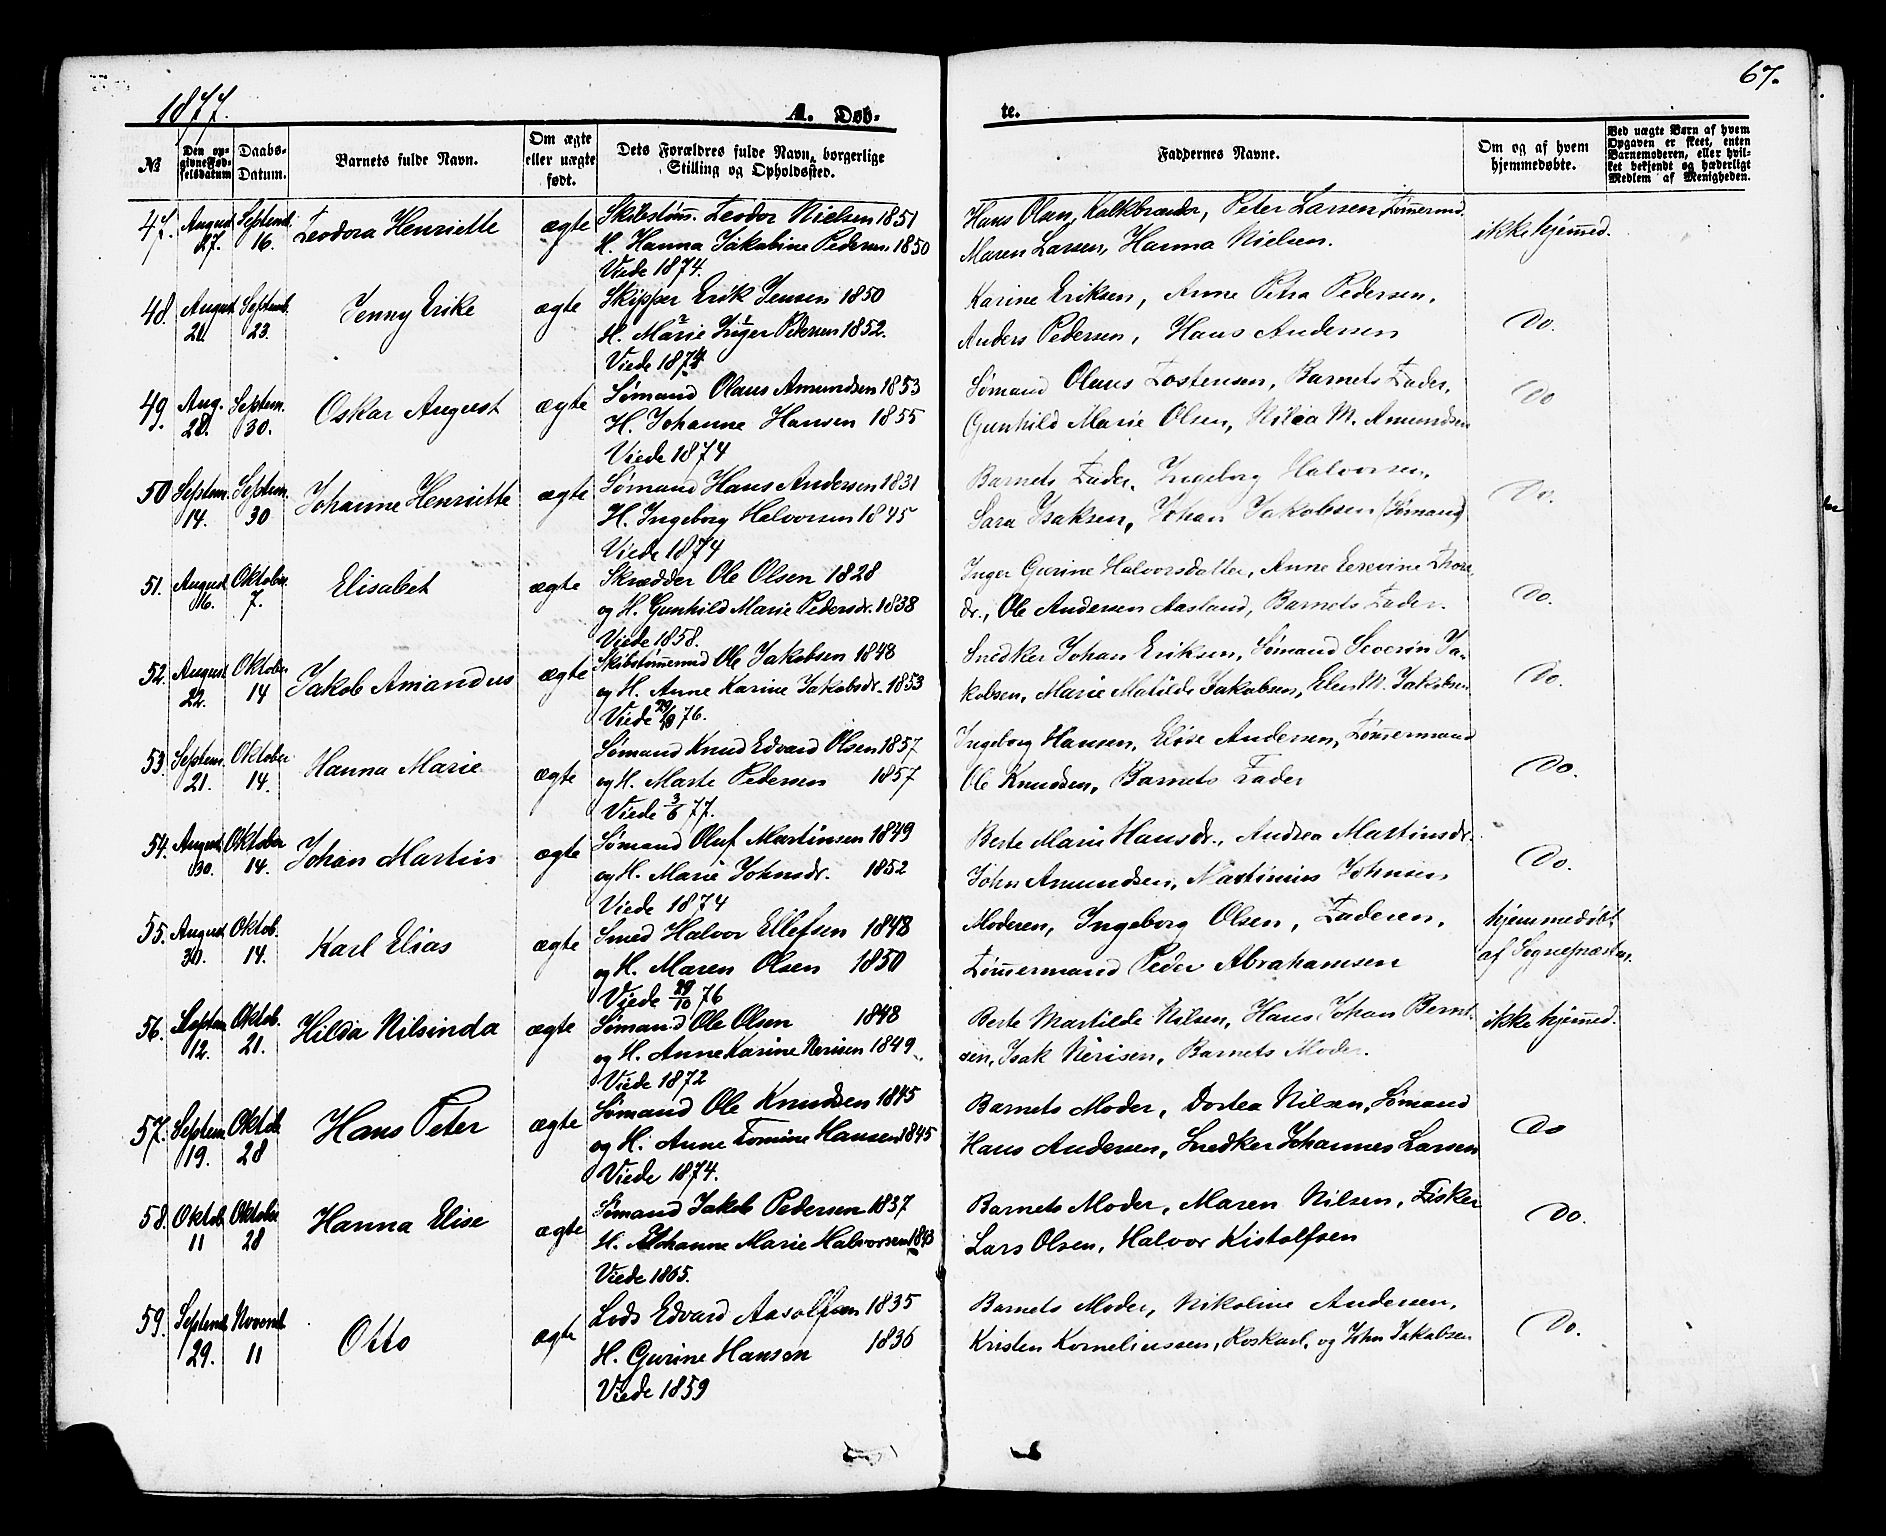 1877.
A. Døb-
te.
67.
№
Den op-
givne Fød-
selsdatum
Daabs-
Datum.
Barnets fulde Navn.
Om ægte
eller uægte
født.
Dets Forældres fulde Navn, borgerlige
Stilling og Opholdssted.
Faddernes Navne.
Om og af hvem
hjemmedøbte.
Ved uægte Børn af hvem
Opgaven er skeet, enten
Barnemoderen, eller hvil-
ket bekjendt og hæderligt
Medlem af Menigheden.
47. August 27. Septemb. 16. Teodora Henriette ægte Skibstøm̄. Teodor Nielsen 1851
H. Hanna Jakobine Pedersen 1850
Viede 1874.
Hans Olsen, Kalkbrænder, Peter Larsen Tøm̄ermd.
Maren Larsen, Hanna Nielsen.
ikke hjem̄ed.
48. August 21. Septemb. 23. Jenny Erike ægte Skipper Erik Jensen 1850
H. Marie Inger Pedersen 1852.
Viede 1874
Karine Eriksen, Anne Petra Pedersen,
Anders Pedersen, Hans Andersen
Do.
49. Aug. 28. Septem. 30. Oskar August ægte Sømand Olaus Amundsen 1853
H. Johanne Hansen 1855
Viede 1874
Sømand Olaus Tostensen, Barnets Fader,
Gunhild Marie Olsen, M. Amundsen
Do
50 Septem. 14. Septem. 30 Johanne Henriette ægte Sømand Hans Andersen 1831
H. Ingeborg Halvorsen 1845
Viede 1874
Barnets Fader, Ingeborg Halvorsen,
Sara Isaksen, Johan Jakobsen (Sømand)
Do.
51. August 16. Oktober 7. Elisabet ægte Skrædder Ole Olsen 1828
og H. Gunhild Marie Pedersdr. 1838
Viede 1858.
Inger Gurine Halvorsdatter, Anne
dr., Ole Andersen Aasland, Barnets Fader.
Do.
52. August 22. Oktober 14 Jakob Amandus ægte Skibstøm̄ermd Ole Jakobsen 1848
og H. Anne Karine Jakobsdr. 1853
Viede 76.
Snedker Johan Eriksen, Sømand Severin Ja-
kobsen, Marie Matilde Jakobsen, Elen M. Jakobsen
Do.
53. Septem. 21. Oktober 14. Hanna Marie ægte Sømand Knud Edvard Olsen 1857
og H. Marte Pedersen 1857
Viede 3/6 77.
Ingeborg Hansen, Elise Andersen, Tøm̄ermand
Ole Knudsen, Barnets Fader
Do.
54. August 30. Oktober 14. Johan Martin ægte Sømand Oluf Martinsen 1849
og H. Marie Johnsdr. 1852
Viede 1874
Berte Marie Hansdr., Andrea Martinsdr.
John Amundsen, Martinius Johnsen
Do.
55. August 30. Oktob. 14. Karl Elias ægte Smed Halvor Ellefsen 1848
og H. Maren Olsen 1850
Viede 29/10 76
Moderen, Ingeborg Olsen, Faderen,
Tøm̄ermand Peder Abrahamsen
hjemmedøbt
af Sognepræsten.
56. Septem 12. Oktob. 21. Hilda Nilsinda ægte Sømand Ole Olsen 1848
og H. Anne Karine Nerisen 1849.
Viede 1872
Berte Martilde Nilsen, Hans Johan Bernt-
sen, Isak Nerisen, Barnets Moder.
ikke hjem̄ed.
57. Septem 19. Oktob. 28 Hans Peter ægte Sømand Ole Knudsen 1845
og H. Anne Tomine Hansen 1845
Viede 1874.
Barnets Moder, Dortea Nilsen, Sømand
Hans Andersen, Snedker Johannes Larsen
Do
58. Oktob. 11 Oktober 28 Hanna Elise ægte Sømand Jakob Pedersen 1837
H. Johanne Marie Halvorsen 1843
Viede 1865.
Barnets Moder, Maren Nilsen, Fisker
Lars Olsen, Halvor Kistolfsen
Do.
59. Septemb. 29. Novemb. 11 Otto ægte Lods Edvard Aasolfsen 1835
H. Gurine Hansen 1836
Viede 1859
Barnets Moder, Nikoline Andersen,
Kristen Korneliussen, Koskarl, og John Jakobsen
Do.